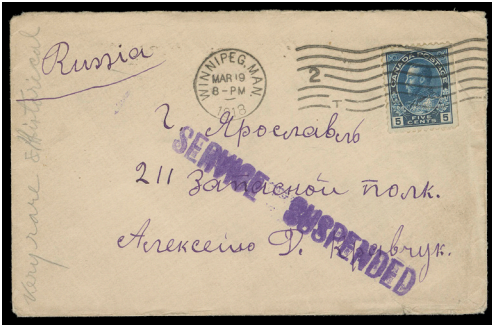 Very rare & Historical
Russia
WINNIPEG, MAN.
MAR 19
8-PM
1918
2
T
CANADA POSTAGE
5 FIVE CENTS 5
г. Ярославль
211 Запасной полк.
Алексею Ф. Кравчук.
SERVICE SUSPENDED